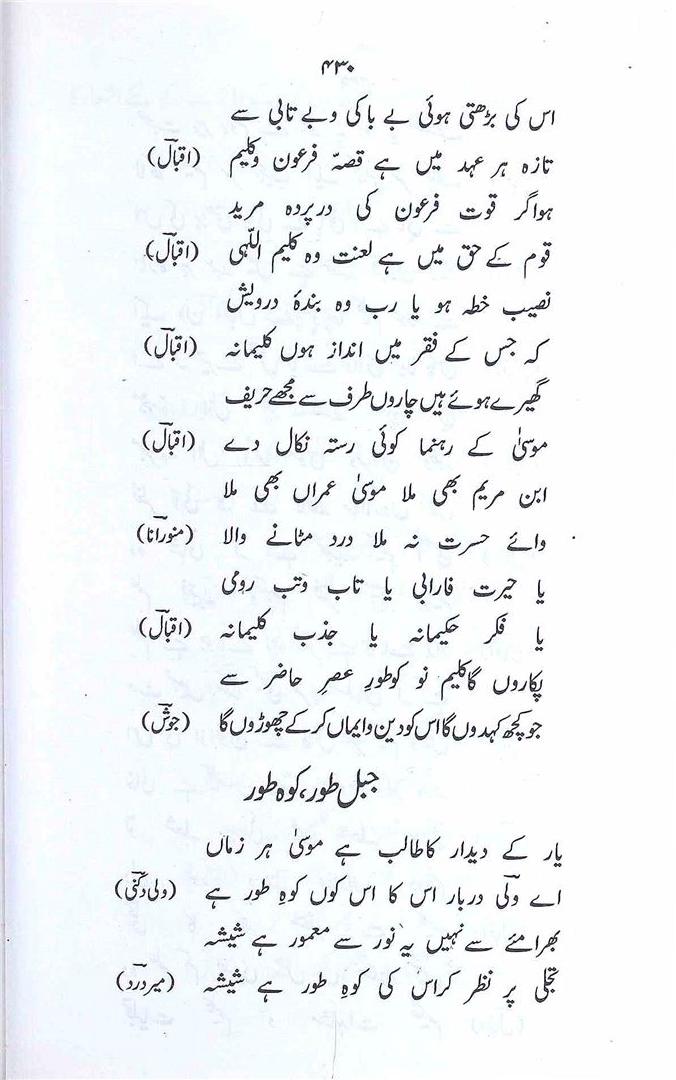 ۴۳۰
اس کی بڑھتی ہوئی بے باکی و بے تابی سے
تازہ ہر عہد میں ہے قصۂ فرعون و کلیم (اقبالؔ)
ہو اگر قوت فرعون کی در پردہ مرید
قوم کے حق میں ہے لعنت وہ کلیم اللّٰہی (اقبالؔ)
نصیب خطہ ہو یا رب وہ بندۂ درویش
کہ جس کے فقر میں انداز ہوں کلیمانہ (اقبالؔ)
گھیرے ہوئے ہیں چاروں طرف سے مجھے حریف
موسیٰ کے رہنما کوئی رستہ نکال دے (اقبالؔ)
ابن مریم بھی ملا موسیٰ عمراں بھی ملا
وائے حسرت نہ ملا درد مٹانے والا (منور راناؔ)
یا حیرت فارابی یا تاب و تب رومی
یا فکر حکیمانہ یا جذب کلیمانہ (اقبالؔ)
پکاروں گا کلیم نو کو طورِ عصرِ حاضر سے
جو کچھ کہدوں گا اس کو دین و ایماں کر کے چھوڑوں گا (جوشؔ)
جبل طور، کوہ طور
یار کے دیدار کا طالب ہے موسیٰ ہر زماں
اے ولیؔ دربار اس کا اس کوں کوہِ طور ہے (ولی دکنیؔ)
بھرا مئے سے نہیں یہ نور سے معمور ہے شیشہ
تجلی پر نظر کر اس کی کوہِ طور ہے شیشہ (میر دردؔ)